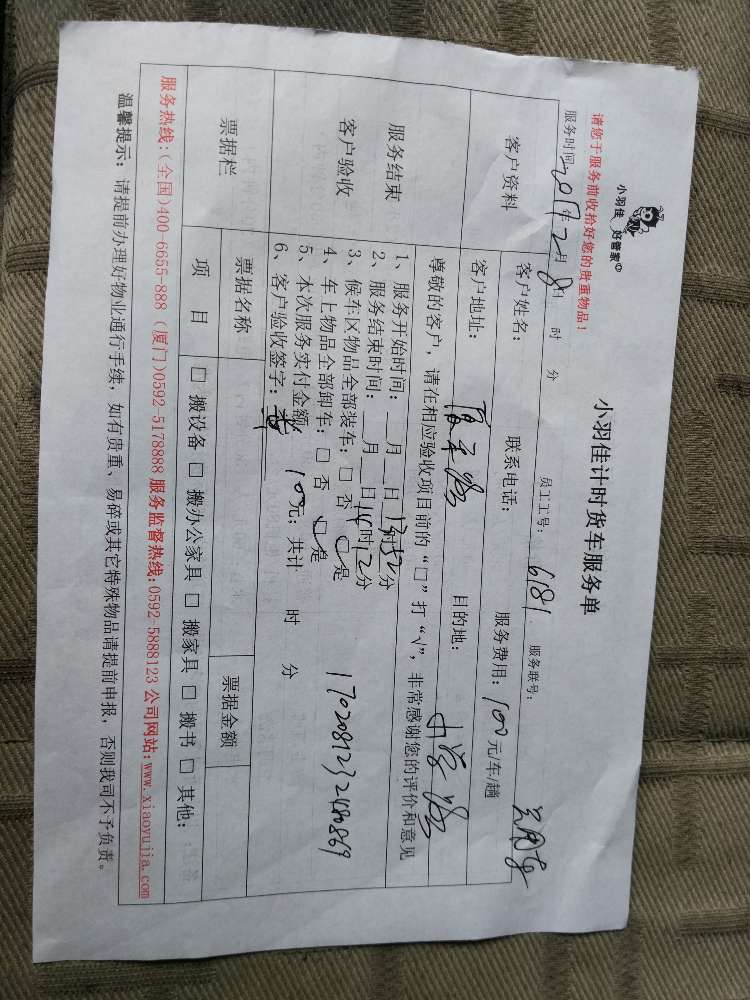 小羽佳 好管家
小羽佳计时货车服务单
请您于服务前收拾好您的贵重物品！
服务时间 2017年2月8日 时 分 员工工号：6181 服务联号：
客户资料
客户姓名： 联系电话： 服务费用：100元/车/趟
客户地址： 目的地：
服务结束
客户验收
尊敬的客户，请在相应验收项目前的“□”打“√”，非常感谢您的评价和意见
1、服务开始时间：__月__日13时52分
2、服务结束时间：__月__日14时12分
3、候车区物品全部装车：□ 否 □ 是
4、车上物品全部卸车：□ 否 □ 是
5、本次服务实付金额 元；共计 时 分
6、客户验收签字：
票据栏
票据名称
票据金额
项 目
□ 搬设备 □ 搬办公家具 □ 搬家具 □ 搬书 □ 其他：
服务热线：(全国)400-6655-888 (厦门)0592-5178888 服务监督热线：0592-5888123 公司网站：www.xiaoyujia.com
温馨提示：请提前办理好物业通行手续，如有贵重、易碎或其它特殊物品请提前申报，否则我司不予负责。